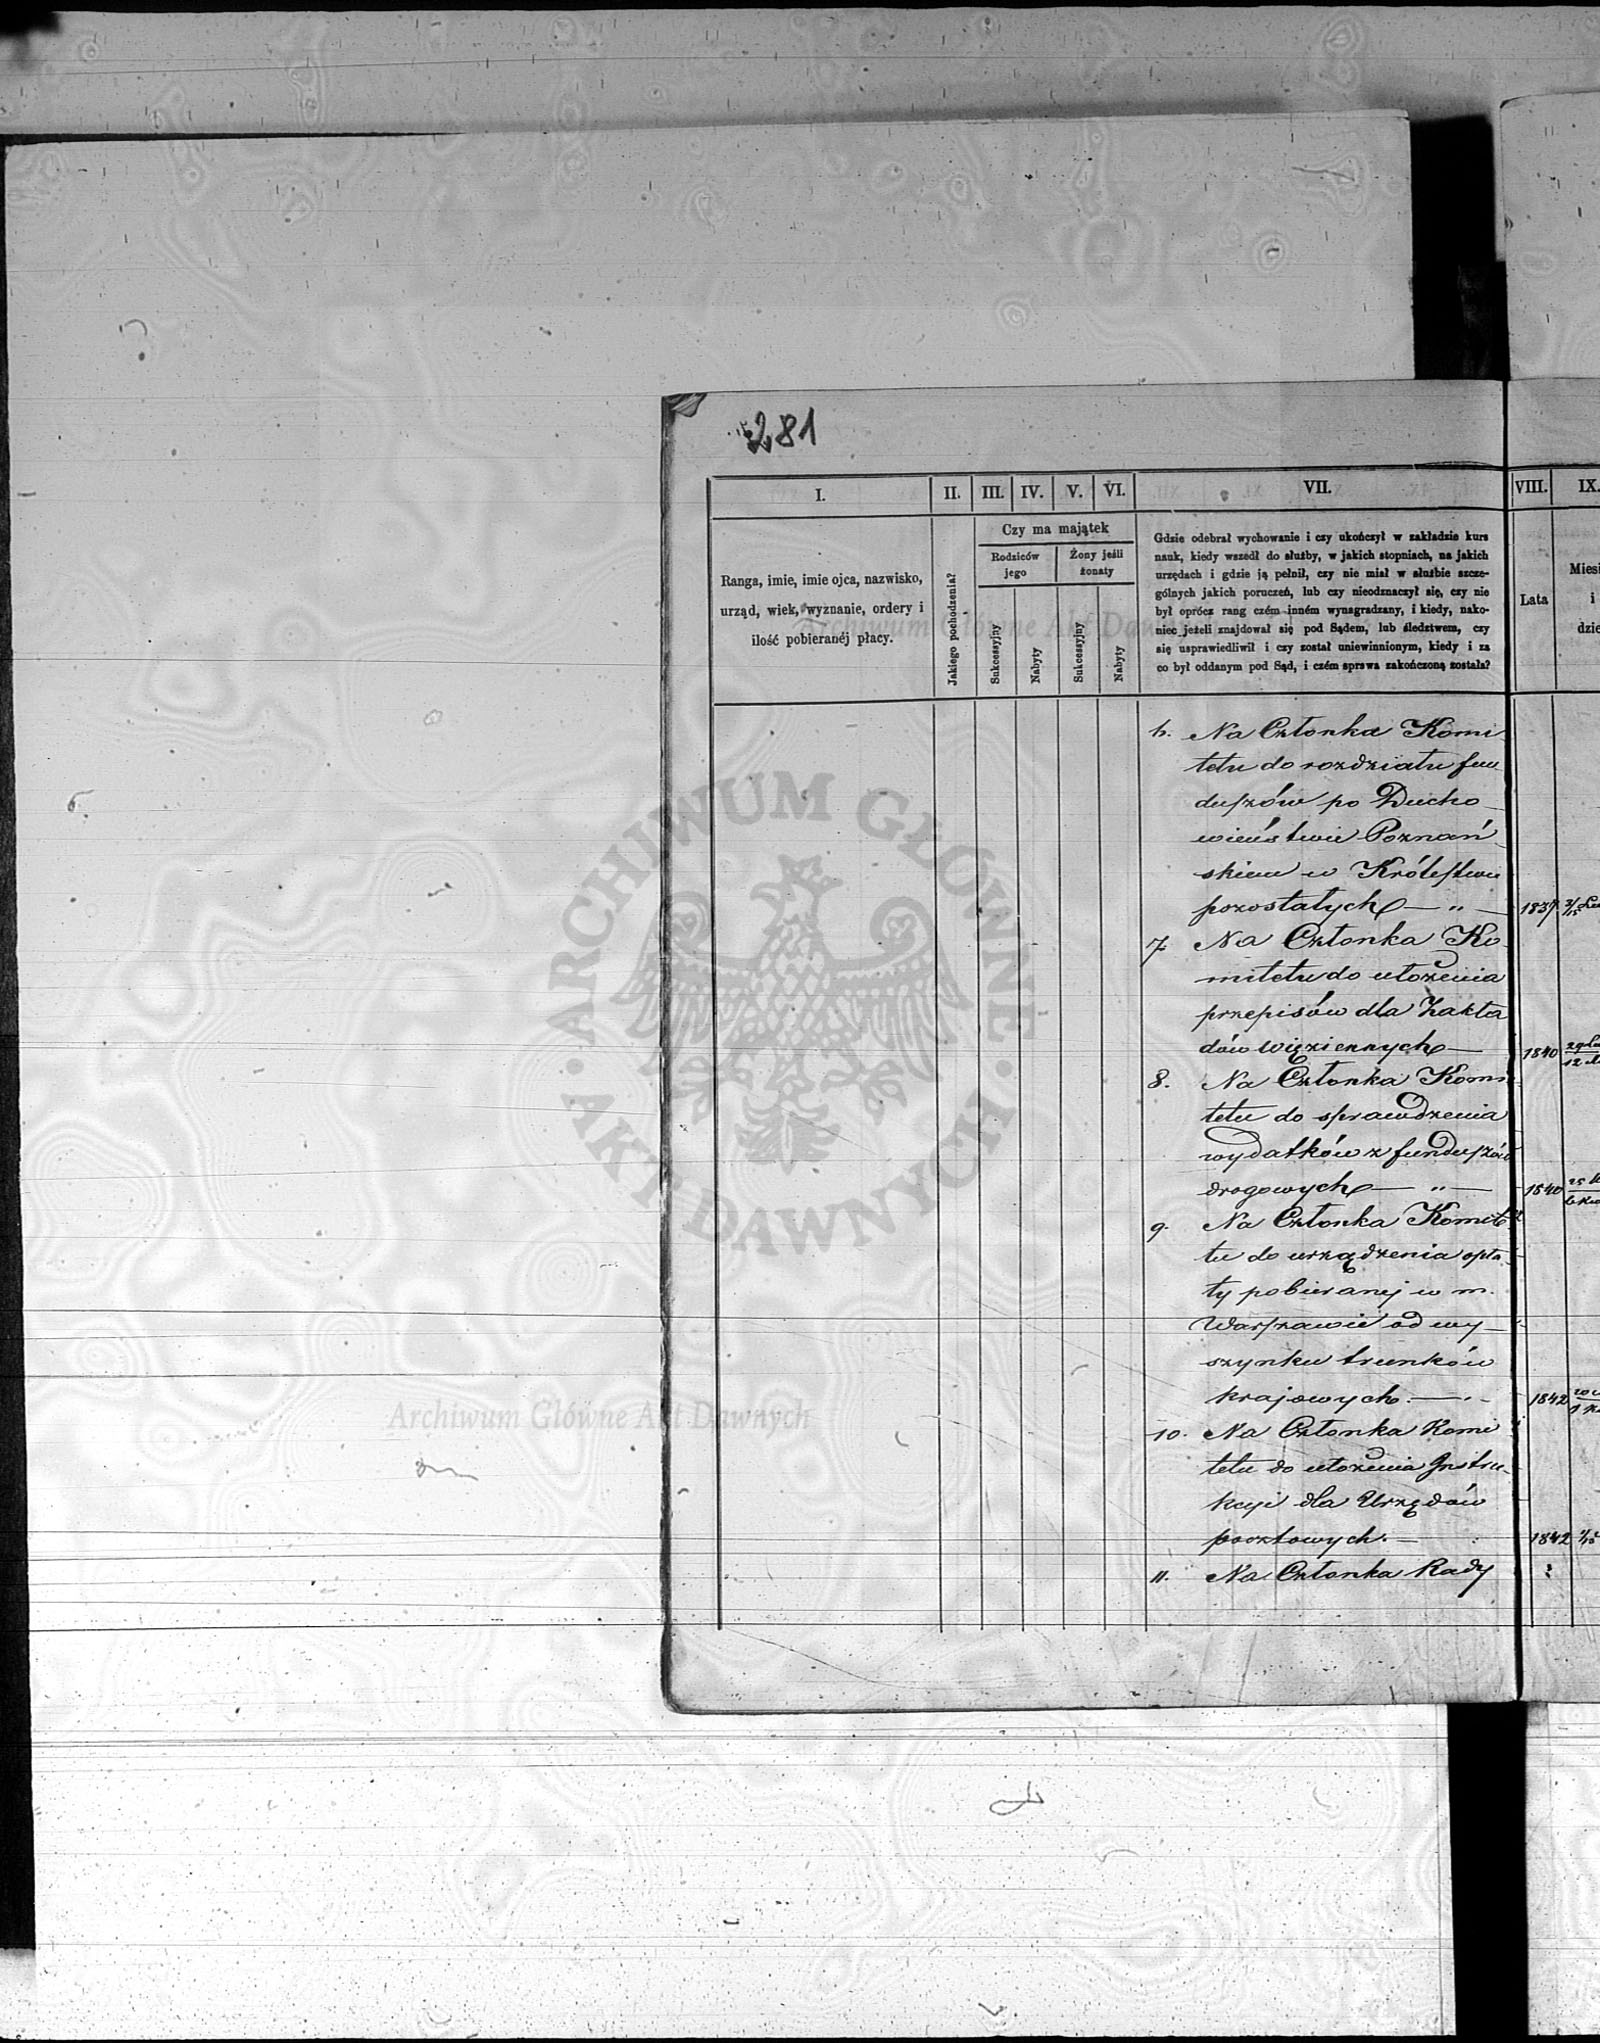 281
I. II. III. IV. V. VI. VII. VIII. IX.
Ranga, imie, imie ojca, nazwisko,
urząd, wiek, wyznanie, ordery i
ilość pobieranéj płacy.
Jakiego pochodzenia?
Czy ma majątek
Rodziców
jego
Żony jeśli
żonaty
Sukcessyjny
Nabyty
Sukcessyjny
Nabyty
Gdzie odebrał wychowanie i czy ukończył w zakładzie kurs
nauk, kiedy wszedł do służby, w jakich stopniach, na jakich
urzędach i gdzie ją pełnił, czy nie miał w służbie szcze-
gólnych jakich poruczeń, lub czy nieodznaczył się, czy nie
był oprócz rang czém inném wynagradzany, i kiedy, nako-
niec jeżeli znajdował się pod Sądem, lub śledztwem, czy
się usprawiedliwił i czy został uniewinnionym, kiedy i za
co był oddanym pod Sąd, i czém sprawa zakończoną została?
Lata
Miesi
i
dzie
6. Na Członka Komi
tetu do rozdziału fun
duszów po Ducho
wieństwie Poznań
skiem w Królestwie
pozostałych — " — 1837 3/15
7. Na Członka Ko-
mitetu do ułożenia
przepisów dla Zakła
dów więziennych — 1840
8. Na Członka Komi
tetu do sprawdzenia
wydatków z funduszów
drogowych — " — 1840
9. Na Członka Komite
tu do urządzenia opła
ty pobieranej w m.
Warszawie od wy—
szynku trunków
krajowych. — 1842
10. Na Członka Komi
tetu do ułożenia Instru-
kcyi dla Urzędów
pocztowych. — 1842
11. Na Członka Rady
ARCHIWUM GŁÓWNE AKT DAWNYCH
Archiwum Główne Akt Dawnych
Archiwum Główne Akt Dawnych